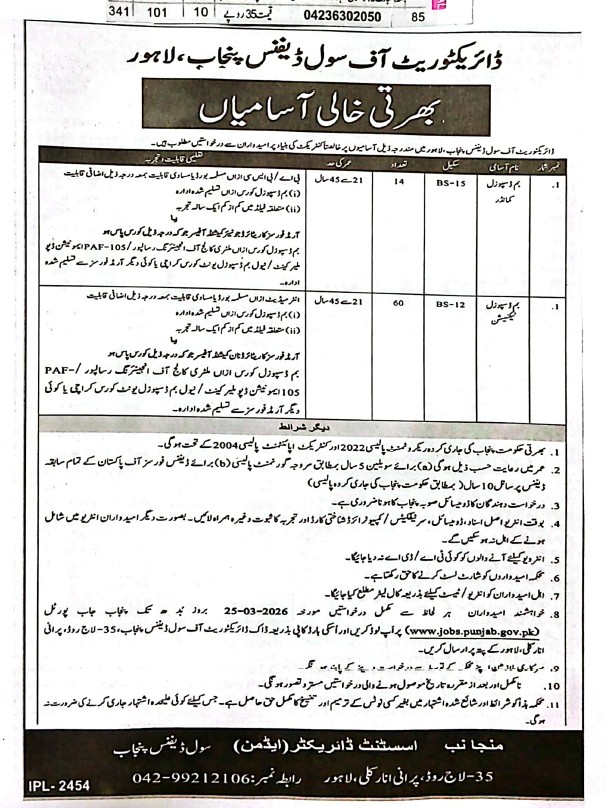 341 101 10 قیمت 35 روپے 04236302050 85
ڈائریکٹوریٹ آف سول ڈیفنس پنجاب، لاہور
بھرتی خالی آسامیاں
ڈائریکٹوریٹ آف سول ڈیفنس پنجاب، لاہور میں مندرجہ ذیل آسامیوں پر خالصتاً کنٹریکٹ کی بنیاد پر امیدواران سے درخواستیں مطلوب ہیں۔
نمبر شمار نام آسامی سکیل تعداد عمر کی حد تعلیمی قابلیت و تجربہ
1. بم ڈسپوزل کمانڈر BS-15 14 21 سے 45 سال بی اے/ بی ایس سی ازاں مسلمہ بورڈ یا مساوی قابلیت بمعہ درجہ ذیل اضافی قابلیت
(i) بم ڈسپوزل کورس ازاں تسلیم شدہ ادارہ
(ii) متعلقہ فیلڈ میں کم از کم ایک سالہ تجربہ
یا
آرمڈ فورسز کا ریٹائرڈ جونیئر کمیشنڈ آفیسر جو کہ درجہ ذیل کورس پاس ہو
بم ڈسپوزل کورس ازاں ملٹری کالج آف انجینئرنگ رسالپور/ PAF-105 ایمونیشن ڈپو
ملیر کینٹ/ نیول بم ڈسپوزل یونٹ کورس کراچی یا کوئی دیگر آرمڈ فورسز سے تسلیم شدہ
ادارہ۔
1. بم ڈسپوزل ٹیکنیشن BS-12 60 21 سے 45 سال انٹرمیڈیٹ ازاں مسلمہ بورڈ یا مساوی قابلیت بمعہ درجہ ذیل اضافی قابلیت
(i) بم ڈسپوزل کورس ازاں تسلیم شدہ ادارہ
(ii) متعلقہ فیلڈ میں کم از کم ایک سالہ تجربہ
یا
آرمڈ فورسز کا ریٹائرڈ نان کمیشنڈ آفیسر جو کہ درجہ ذیل کورس پاس ہو
بم ڈسپوزل کورس ازاں ملٹری کالج آف انجینئرنگ رسالپور/ PAF-
105 ایمونیشن ڈپو ملیر کینٹ/ نیول بم ڈسپوزل یونٹ کورس کراچی یا کوئی
دیگر آرمڈ فورسز سے تسلیم شدہ ادارہ۔
دیگر شرائط
1. بھرتی حکومت پنجاب کی جاری کردہ ریکروٹمنٹ پالیسی 2022 اور کنٹریکٹ اپائنٹمنٹ پالیسی 2004 کے تحت ہوگی۔
2. عمر میں رعایت حسب ذیل ہوگی (a) برائے سویلین 5 سال بمطابق مروجہ گورنمنٹ پالیسی (b) برائے ڈیفنس فورسز آف پاکستان کے تمام سابقہ
ڈیفنس پرسنل 10 سال (بمطابق حکومت پنجاب کی جاری کردہ پالیسی)
3. درخواست دہندگان کا ڈومیسائل صوبہ پنجاب کا ہونا ضروری ہے۔
4. بوقت انٹرویو اصل اسناد، ڈومیسائل، سرٹیفکیٹس/ کمپیوٹرائزڈ شناختی کارڈ اور تجربہ کا ثبوت وغیرہ ہمراہ لائیں۔ بصورت دیگر امیدواران انٹرویو میں شامل
ہونے کے اہل نہ ہوسکیں گے۔
5. انٹرویو کیلئے آنے والوں کو کوئی ٹی اے/ ڈی اے نہ دیا جائیگا۔
6. محکمہ امیدواروں کو شارٹ لسٹ کرنے کا حق رکھتا ہے۔
7. اہل امیدواران کو انٹرویو/ ٹیسٹ کیلئے بذریعہ کال لیٹر مطلع کیا جائیگا۔
8. خواہشمند امیدواران ہر لحاظ سے مکمل درخواستیں مورخہ 25-03-2026 بروز بدھ تک پنجاب جاب پورٹل
(www.jobs.punjab.gov.pk) پر اپ لوڈ کریں اور اسکی ہارڈ کاپی بذریعہ ڈاک ڈائریکٹوریٹ آف سول ڈیفنس پنجاب، 35-لاج روڈ، پرانی
انارکلی، لاہور کے پتہ پر ارسال کریں۔
9. سرکاری ملازمین اپنے محکمہ کے
10. نامکمل اور بعد از مقررہ تاریخ موصول ہونے والی درخواستیں مسترد تصور ہونگی۔
11. محکمہ ہذا کو شرائط اور شائع شدہ اشتہار میں بغیر کسی نوٹس کے ترمیم اور تنسیخ کا مکمل حق حاصل ہے۔ جس کیلئے کوئی علیحدہ اشتہار جاری کرنے کی ضرورت نہ
ہوگی۔
منجانب اسسٹنٹ ڈائریکٹر (ایڈمن) سول ڈیفنس پنجاب
35-لاج روڈ، پرانی انارکلی، لاہور رابطہ نمبر: 042-99212106
IPL-2454